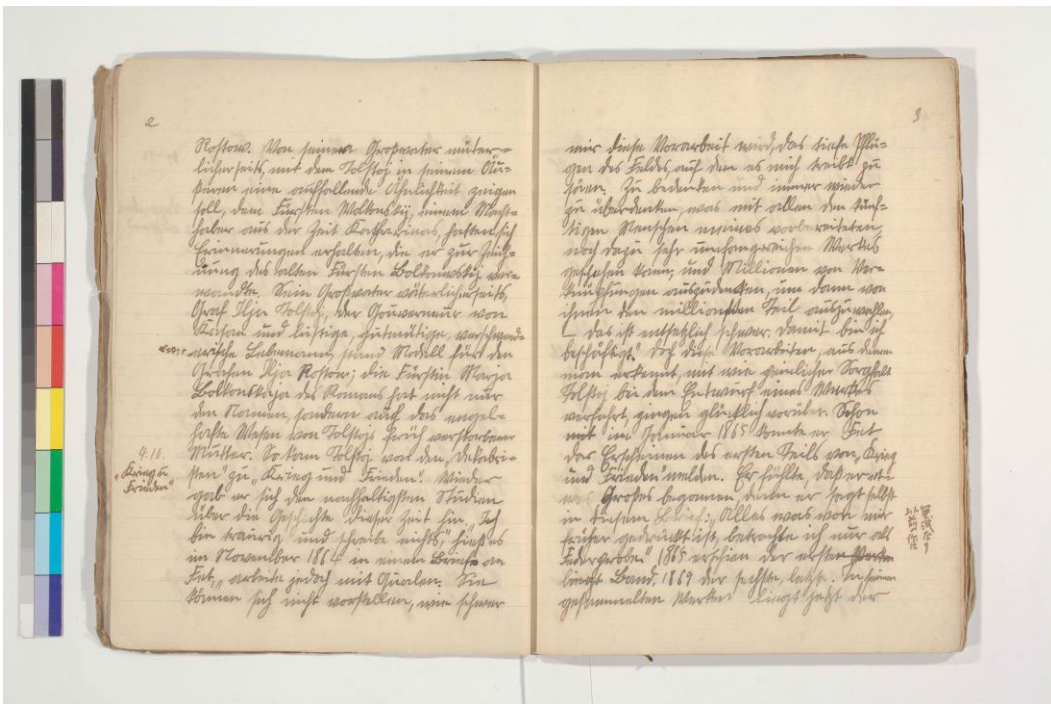 2
Rostow. Von seinem Großvater mütter-
licherseits, mit dem Tolstoj in seinem Äu-
ßeren eine auffallende Ähnlichkeit zeigen
soll, dem Fürsten Wolkonskij, einem Macht-
haber aus der Zeit Katharinas, hatten sich
Erinnerungen erhalten, die er zur Zeich-
nung des alten Fürsten Bolkonskij ver-
wandte. Sein Großvater väterlicherseits,
Graf Ilja Tolstoj, der Gouverneur von
Kasan und lustige, gutmütige, verschwende
rische Lebemann, stand Modell für den
Grafen Ilja Rostow; die Fürstin Marja
Bolkonskaja des Romans hat nicht nur
den Namen, sondern auch das engel-
hafte Wesen von Tolstojs früh verstorbener
Mutter. So kam Tolstoj von den „Dekabri-
sten" zu „Krieg und Frieden". Wieder
gab er sich den nachhaltigsten Studien
über die Geschichte dieser Zeit hin. „Ich
bin traurig und schreibe nichts", hieß es
im November 1864 in einem Briefe an
Fet, „arbeite jedoch mit Qualen. Sie
können sich nicht vorstellen, wie schwer
9.16.
„Krieg u.
Frieden"
3
mir diese Vorarbeit wird, das tiefe Pflü-
gen des Feldes, auf den es mich treibt zu
säen. Zu bedenken und immer wieder
zu überdenken, was mit allen den künf-
tigen Menschen meines vorbereiteten,
noch dazu sehr umfangreichen Werkes
geschehen kann, und Millionen von Ver-
knüpfungen auszudenken, um dann von
ihnen den millionsten Teil auszuwählen,
– das ist entsetzlich schwer. Damit bin ich
beschäftigt." Doch diese Vorarbeiten, aus denen
man erkennt, mit wie peinlicher Sorgfalt
Tolstoj bei dem Entwurf eines Werkes
verfährt, gingen glücklich vorüber. Schon
mit im Januar 1865 konnte er Fet
das Erscheinen des ersten Teils von „Krieg
und Frieden" melden. Er fühlte, daß er et-
was Großes begonnen, denn er sagt selbst
in diesem Brief: „Alles was von mir
früher gedruckt ist, betrachte ich nur als
Federprobe." 1865 erschien der erste
Band, 1869 der sechste, letzte. In seinen
gesammelten Werken liegt jetzt der
以前ノ作